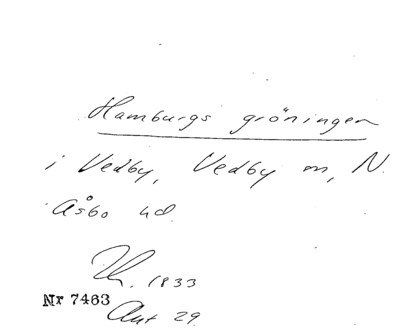 Hamburgs gröningen
i Vedby, Vedby m, N.
Åsbo hd.
1833
Nr 7463
Akt 29.